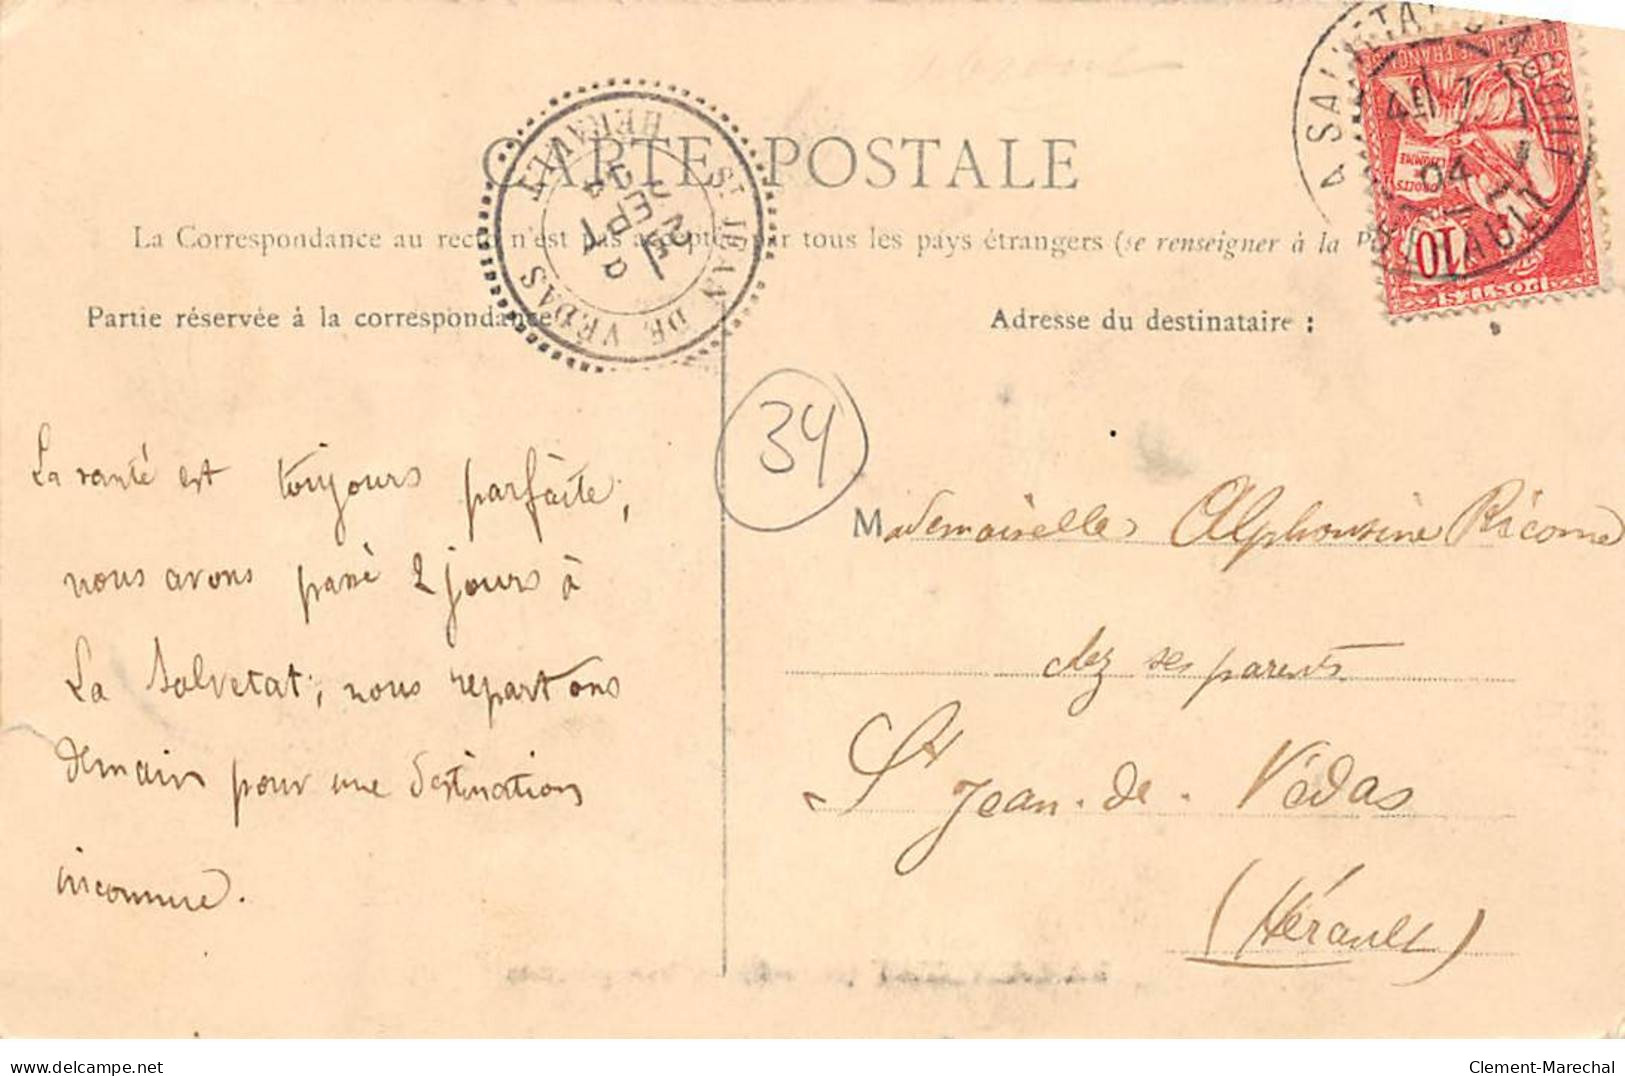 CARTE POSTALE
La Correspondance au recto n'est pas acceptée par tous les pays étrangers (se renseigner à la
Partie réservée à la correspondance
Adresse du destinataire :
ST JEAN DE VÉDAS
HERAULT
SEPT
04
REPUBLIQUE FRANCAISE
DROITS DE L'HOMME
10
POSTES
34
La santé est toujours parfaite,
nous avons passé 2 jours à
La Salvetat, nous repartons
demain pour une destination
inconnue.
Mademoiselle Alphonsine Ricome
chez ses parents
St Jean-de-Védas
(Hérault)
Clement-Marechal